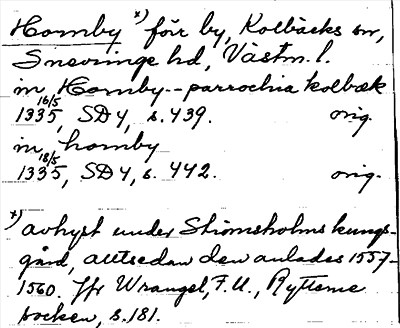 Hornby x) förr by, Kolbäcks sn,
Snevringe hd, Västm. l.
in Hornby -- parrochia kolbæk
1335 16/5, SD 4, s. 439. orig.
in hornby
1335 18/5, SD 4, s. 442. orig.
x) avhyst under Strömsholms kungs-
gård, alltsedan den anlades 1557-
1560. Jfr Wrangel, F.U., Rytterne
socken, s. 181.